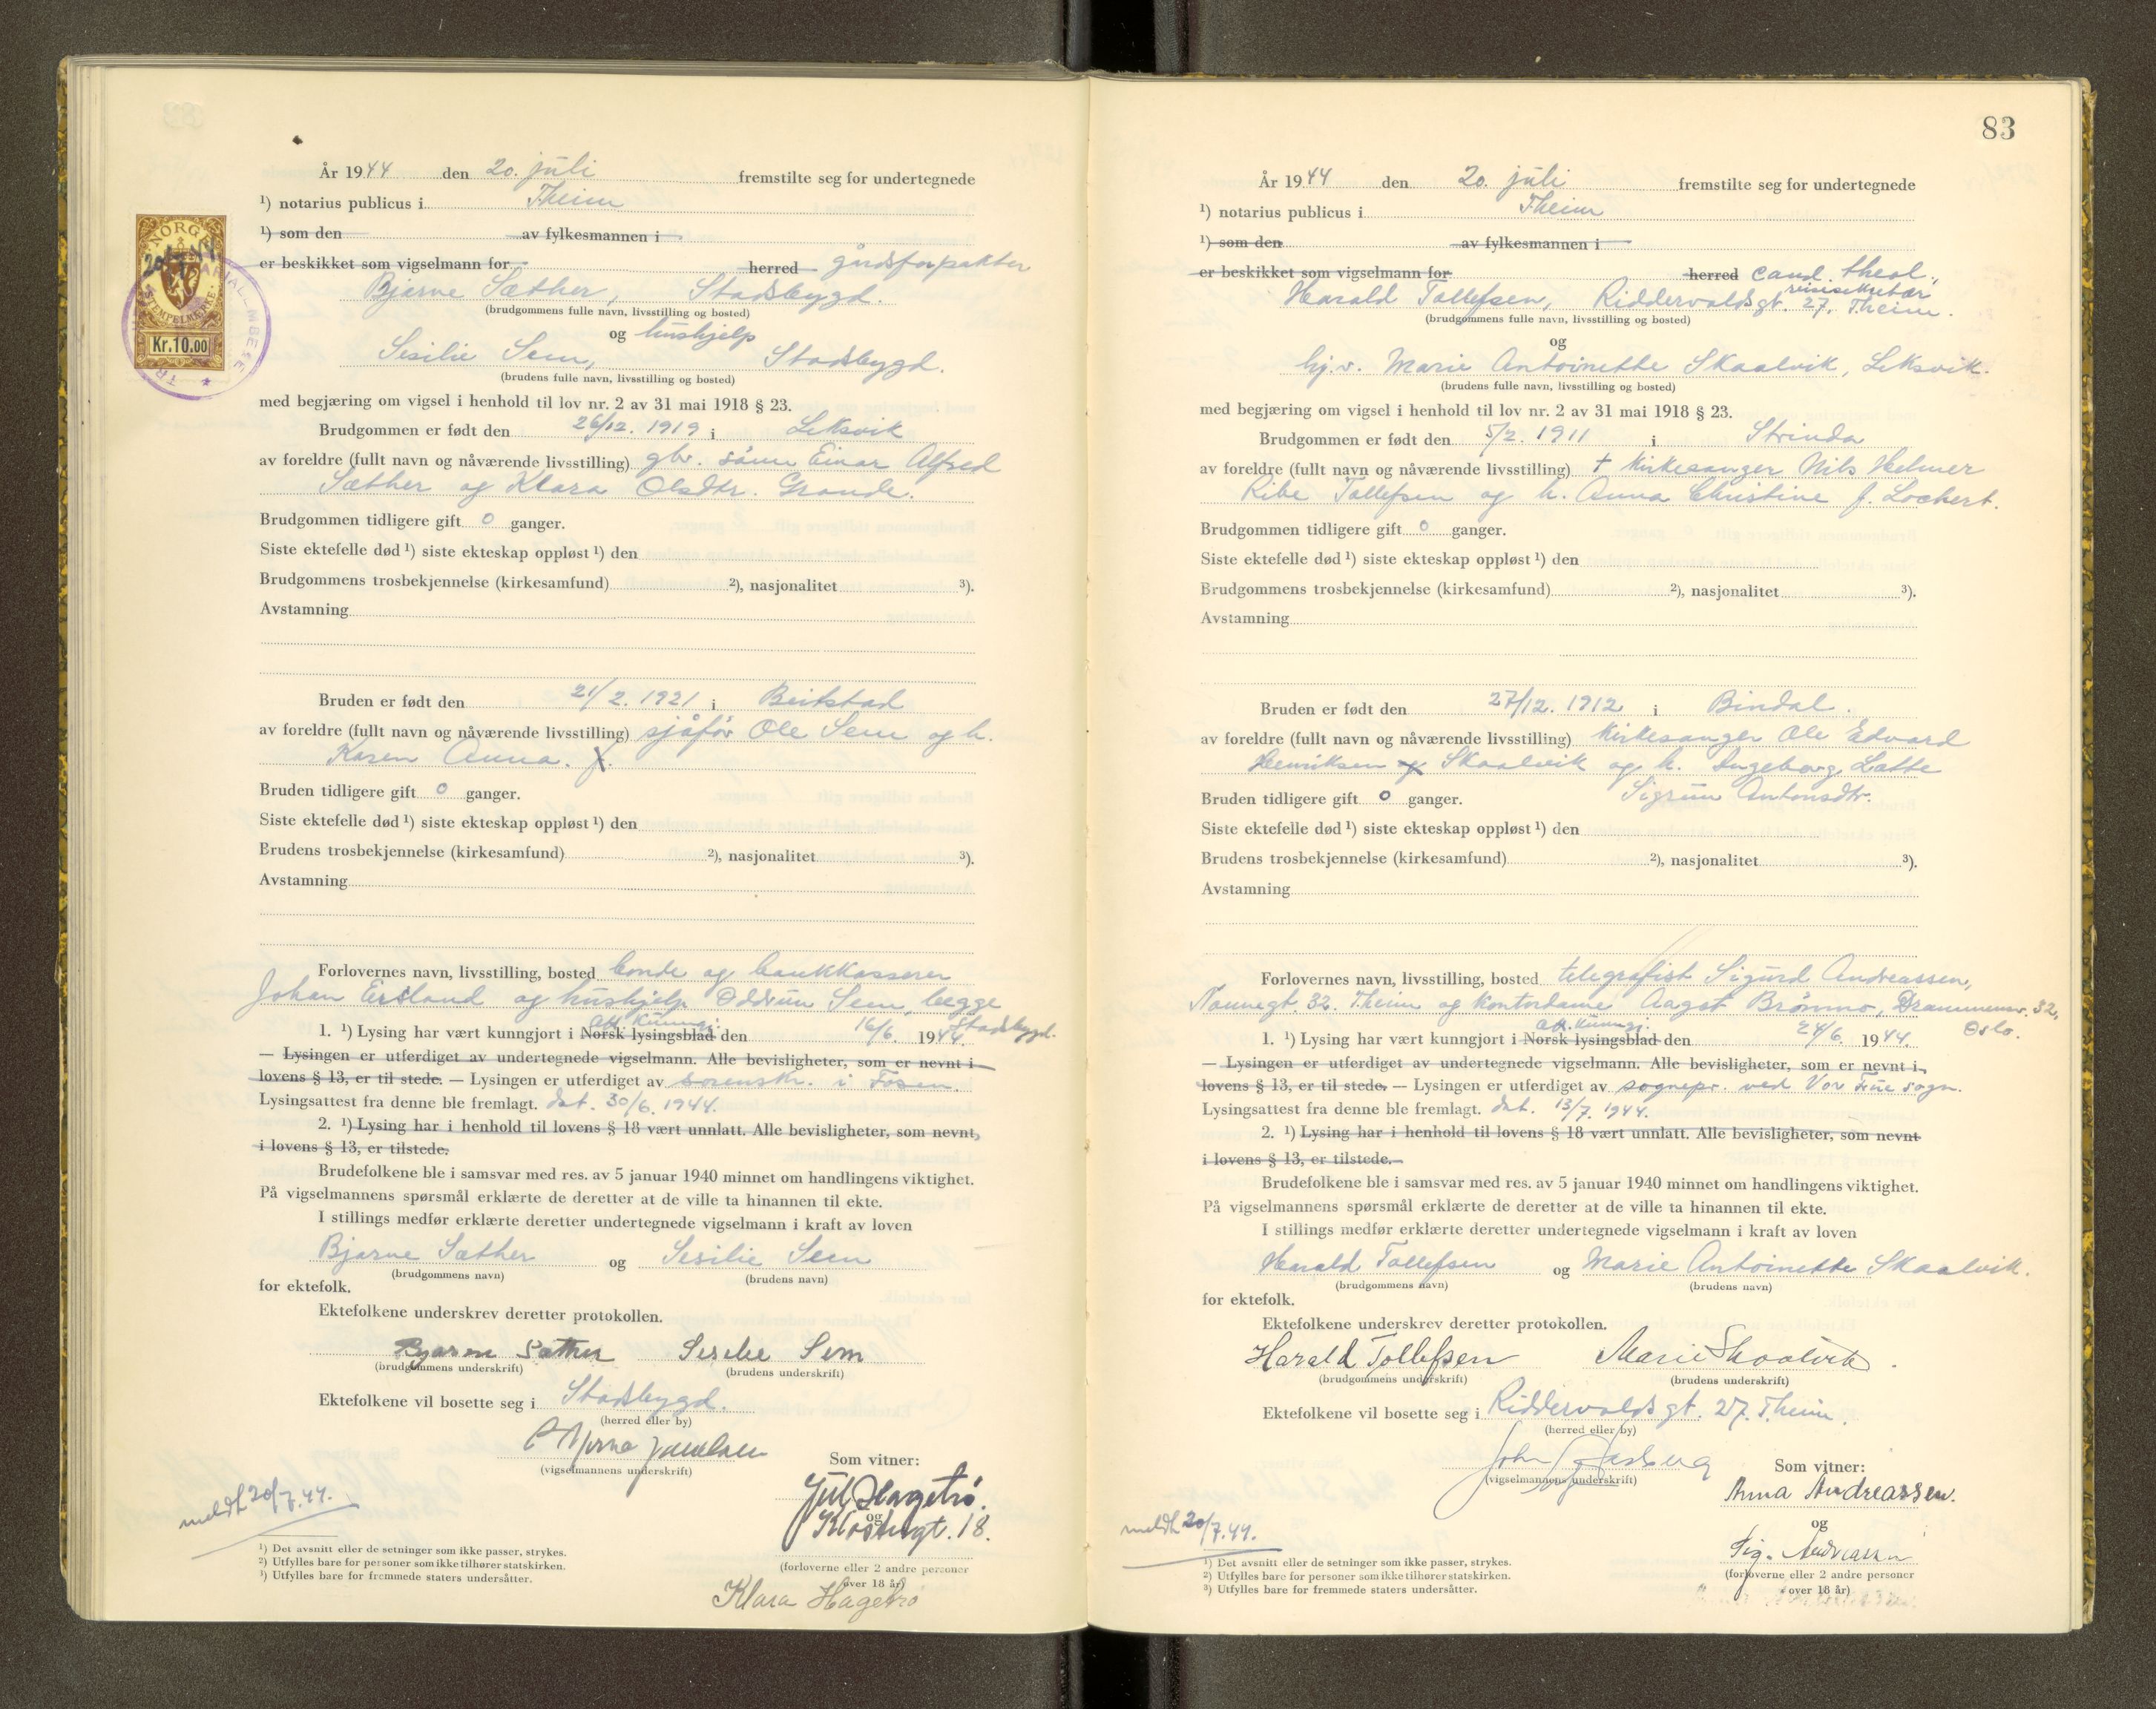 År 1944 den 20. juli fremstilte seg for undertegnede
¹) notarius publicus i Theim
¹) som den av fylkesmannen i
er beskikket som vigselmann for herred gårdsforpakter
Bjarne Sæther, Stadsbygd.
(brudgommens fulle navn, livsstilling og bosted)
og hushjelp
Sesilie Sem, Stadsbygd.
(brudens fulle navn, livsstilling og bosted)
med begjæring om vigsel i henhold til lov nr. 2 av 31 mai 1918 § 23.
Brudgommen er født den 26/12. 1919 i Leksvik
av foreldre (fullt navn og nåværende livsstilling) gbr. sønn Einar Alfred
Sæther og Klara Olsdtr. Grande.
Brudgommen tidligere gift 0 ganger.
Siste ektefelle død ¹) siste ekteskap oppløst ¹) den
Brudgommens trosbekjennelse (kirkesamfund) ²), nasjonalitet ³).
Avstamning
Bruden er født den 21/2. 1921 i Beitstad
av foreldre (fullt navn og nåværende livsstilling) sjåfør Ole Sem og h.
Karen Anna. f.
Bruden tidligere gift 0 ganger.
Siste ektefelle død ¹) siste ekteskap oppløst ¹) den
Brudens trosbekjennelse (kirkesamfund) ²), nasjonalitet ³).
Avstamning
Forlovernes navn, livsstilling, bosted bonde og bankkasserer
Johan Ersland og hushjelp Oddrun Sem, begge
Stadsbygd.
1. ¹) Lysing har vært kunngjort i Norsk lysingsblad off. kunngj. den 16/6. 1944.
— Lysingen er utferdiget av undertegnede vigselmann. Alle bevisligheter, som er nevnt i
lovens § 13, er til stede. — Lysingen er utferdiget av sorenskr. i Fosen.
Lysingsattest fra denne ble fremlagt. dat. 30/6. 1944.
2. ¹) Lysing har i henhold til lovens § 18 vært unnlatt. Alle bevisligheter, som nevnt,
i lovens § 13, er tilstede.
Brudefolkene ble i samsvar med res. av 5 januar 1940 minnet om handlingens viktighet.
På vigselmannens spørsmål erklærte de deretter at de ville ta hinannen til ekte.
I stillings medfør erklærte deretter undertegnede vigselmann i kraft av loven
Bjarne Sæther og Sesilie Sem
(brudgommens navn) (brudens navn)
for ektefolk.
Ektefolkene underskrev deretter protokollen.
Bjarne Sæther Sesilie Sem
(brudgommens underskrift) (brudens underskrift)
Ektefolkene vil bosette seg i Stadsbygd.
(herred eller by)
(vigselmannens underskrift)
Som vitner:
Jul Hagetrø.
og
Klostergt. 18.
(forloverne eller 2 andre personer
over 18 år)
Klara Hagetrø
meldt 20/7.44.
¹) Det avsnitt eller de setninger som ikke passer, strykes.
²) Utfylles bare for personer som ikke tilhører statskirken.
³) Utfylles bare for fremmede staters undersåtter.
NORGE
STEMPELMERKE
Kr.10.00
83
År 1944 den 20. juli fremstilte seg for undertegnede
¹) notarius publicus i Theim
¹) som den av fylkesmannen i
er beskikket som vigselmann for herred cand. theol.,
reisesekretær
Harald Tollefsen, Riddervoldsgt. 27. Theim.
(brudgommens fulle navn, livsstilling og bosted)
og
hj.v. Marie Antoinette Skaalvik, Leksvik.
(brudens fulle navn, livsstilling og bosted)
med begjæring om vigsel i henhold til lov nr. 2 av 31 mai 1918 § 23.
Brudgommen er født den 5/2. 1911 i Strinda
av foreldre (fullt navn og nåværende livsstilling) † Kirkesanger Nils Helmer
Ribe Tollefsen og h. Anna Christine f. Lockert.
Brudgommen tidligere gift 0 ganger.
Siste ektefelle død ¹) siste ekteskap oppløst ¹) den
Brudgommens trosbekjennelse (kirkesamfund) ²), nasjonalitet ³).
Avstamning
Bruden er født den 27/12. 1912 i Bindal.
av foreldre (fullt navn og nåværende livsstilling) Kirkesanger Ole Edvard
Henriksen og Skaalvik og h. Ingeborg Lætte
Sigrun Antonsdtr.
Bruden tidligere gift 0 ganger.
Siste ektefelle død ¹) siste ekteskap oppløst ¹) den
Brudens trosbekjennelse (kirkesamfund) ²), nasjonalitet ³).
Avstamning
Forlovernes navn, livsstilling, bosted telegrafist Sigurd Andreassen,
Nonnegt. 32. Theim og kontordame Aagot Brønmo, Drammensv. 32,
Oslo.
1. ¹) Lysing har vært kunngjort i Norsk lysingsblad off. kunngj. den 24/6. 1944.
— Lysingen er utferdiget av undertegnede vigselmann. Alle bevisligheter, som er nevnt i
lovens § 13, er til stede. — Lysingen er utferdiget av sognepr. ved Vor Frue sogn.
Lysingsattest fra denne ble fremlagt. dat. 13/7. 1944.
2. ¹) Lysing har i henhold til lovens § 18 vært unnlatt. Alle bevisligheter, som nevnt
i lovens § 13, er tilstede.
Brudefolkene ble i samsvar med res. av 5 januar 1940 minnet om handlingens viktighet.
På vigselmannens spørsmål erklærte de deretter at de ville ta hinannen til ekte.
I stillings medfør erklærte deretter undertegnede vigselmann i kraft av loven
Harald Tollefsen og Marie Antoinette Skaalvik.
(brudgommens navn) (brudens navn)
for ektefolk.
Ektefolkene underskrev deretter protokollen.
Harald Tollefsen Marie Skaalvik.
(brudgommens underskrift) (brudens underskrift)
Ektefolkene vil bosette seg i Riddervoldsgt. 27. Theim.
(herred eller by)
John Aasberg
(vigselmannens underskrift)
Som vitner:
Anna Andreassen.
og
Sig. Andreassen
(forloverne eller 2 andre personer
over 18 år)
meldt 20/7.44.
¹) Det avsnitt eller de setninger som ikke passer, strykes.
²) Utfylles bare for personer som ikke tilhører statskirken.
³) Utfylles bare for fremmede staters undersåtter.